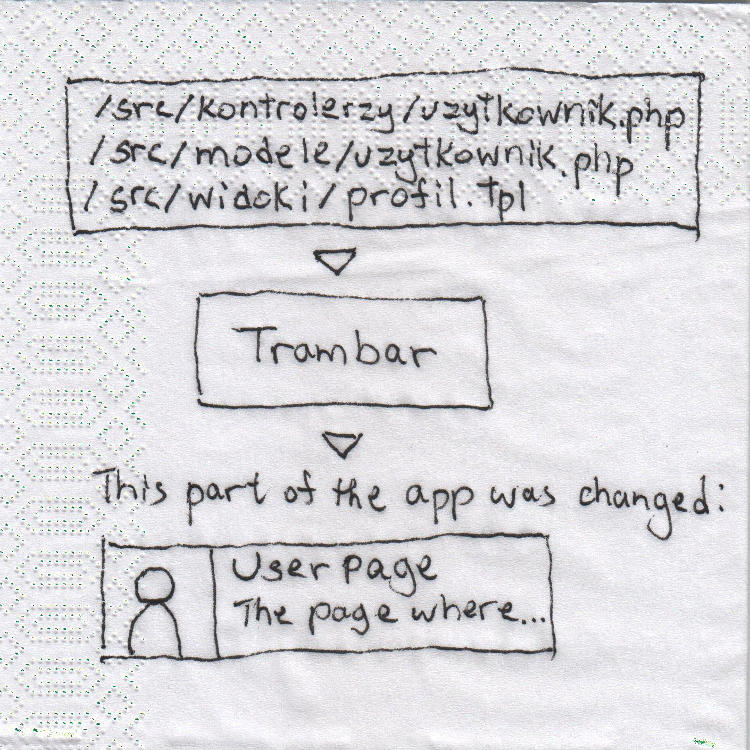 /src/kontrolerzy/uzytkownik.php
/src/modele/uzytkownik.php
/src/widoki/profil.tpl
Trambar
This part of the app was changed:
User page
The page where...